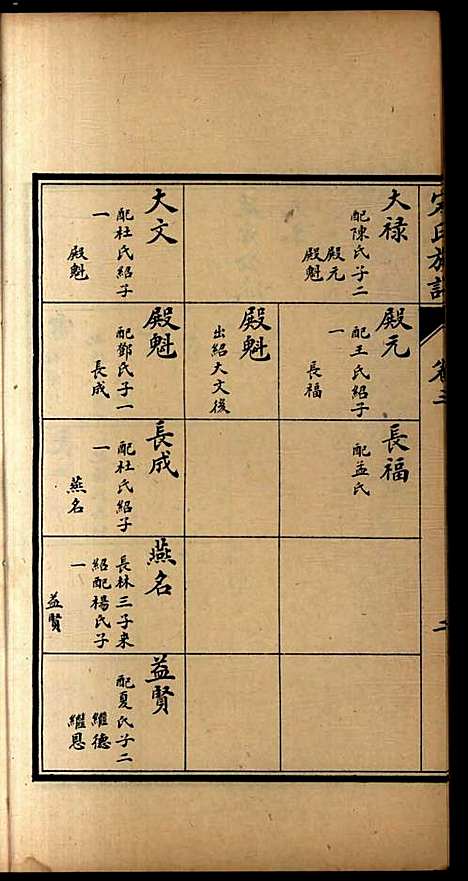 宋氏族譜
卷三
二
大禄
配陳氏子二
殿元
殿魁
殿元
配王氏紹子
一
長福
長福
配孟氏
殿魁
出紹大文後
大文
配杜氏紹子
一
殿魁
殿魁
配鄧氏子一
長成
長成
配杜氏紹子
一
燕名
燕名
長林三子來
紹配楊氏子
一
益賢
益賢
配夏氏子二
維德
繼恩